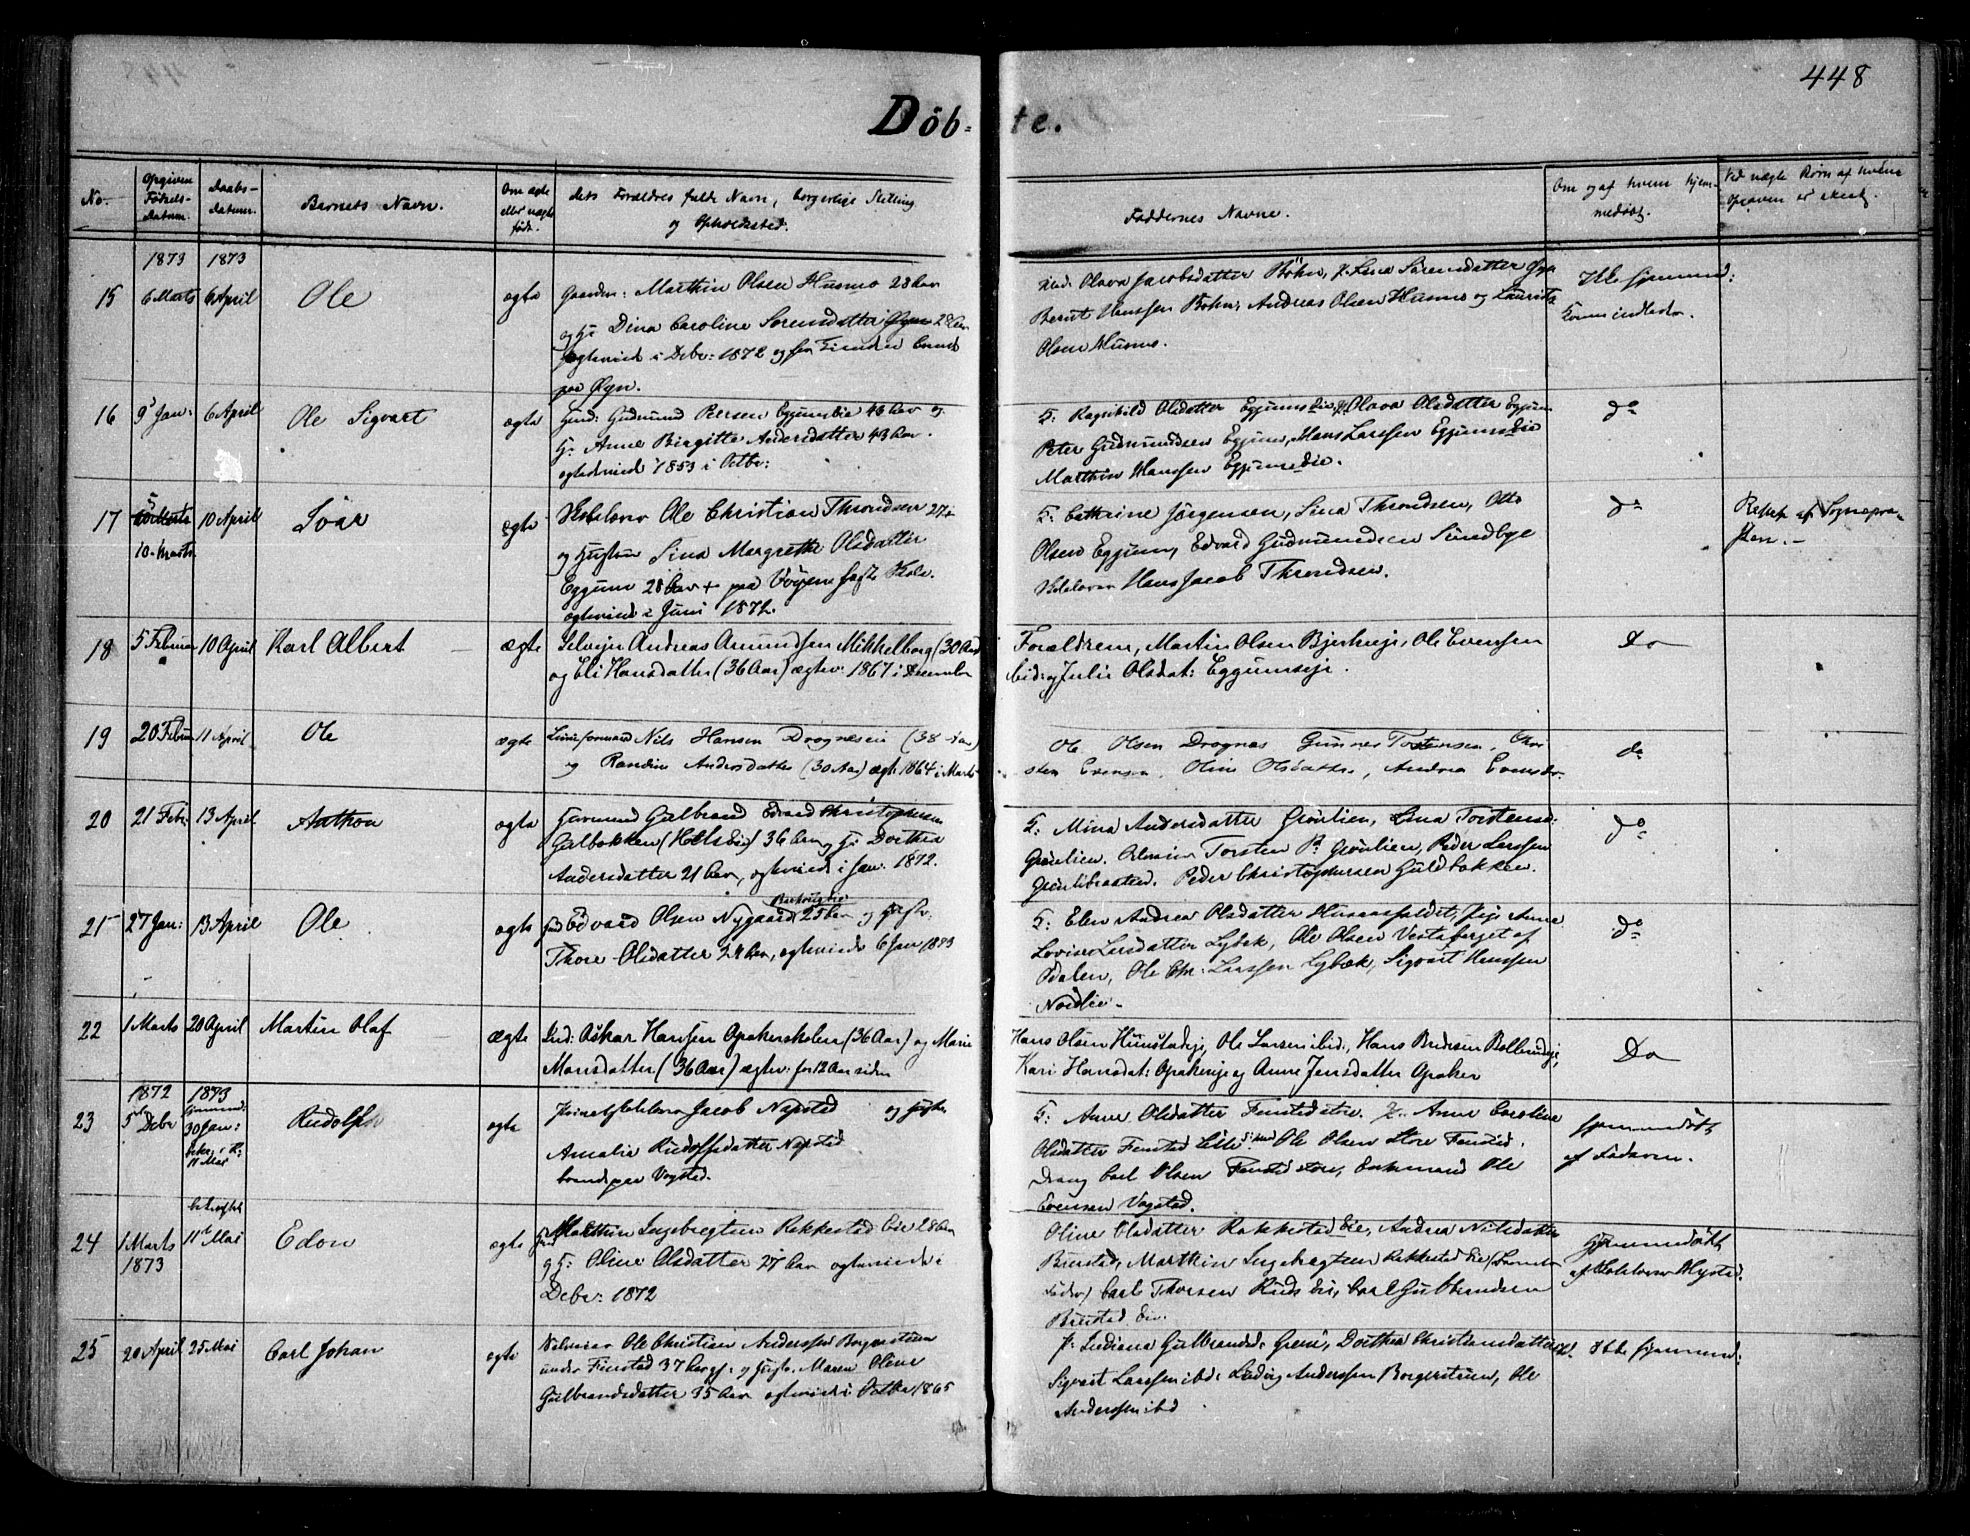 448
Döb- te.
No. Opgiven Fødsels-Datum. Daabs-datum. Barnets Navn. Om ægte eller uægte født. dets Forældres fulde Navn, borgerlige Stilling og Opholdssted. Faddernes Navne. Om og af hvem hjemmedøbt. Ved uægte Børn af hvem Opgaven er skeet.
1873 1873
15 6 Marts 6 April Ole ægte Gaardm: Marthin Olsen Husmo 28 Aar
og H: Dina Caroline Sorensdatter Øyn 28 Aar
ægteviede i Debr: 1872 og
paa Øyn.
Olava Jacobsdatter Böhn, P. Lena Sorensdatter Øyn
Bernt Hanssen Bøhn, Andreas Olsen Husmo og Laurits
Olsen Husmo.
Ikke hjemmed:
16 9 Jan: 6 April Ole Sigvart ægte Huusm: Gudmund Persen Eggumseie 43 Aar og
H: Anne Birgitte Andersdatter 43 Aar.
ægteviede 1853 i Octbr:
F: Ragnhild Olsdatter Eggumseie, P. Olava Olsdatter Eggum
Peter Gudmundsen Eggum, Hans Larssen Eggumseie
Marthin Hanssen Eggumseie.
do
17 5 10 Marts 10 April Ivar ægte Skolelærer Ole Christian Throndsen 27 Aar
og Hustru Lina Margrethe Olsdatter
Eggum 28 Aar paa Vøyens faste Skole.
ægteviede i Juni 1872.
F: Cathrine Jörgensen, Lina Throndsen, Otto
Olsen Eggum, Edvard Gudmundsen Sundbye
Skolelærer Hans Jacob Throndsen.
do
af Sognepræsten.
18 5 Februar 10 April Karl Albert ægte Selveier Andreas Amundsen Mikkelborg (30 Aar)
og Eli Hansdatter (36 Aar) ægtev: 1867 i December
Forældrene, Martin Olsen Bjerkeeje, Ole Evensen
ibid. og Julie Olsdat: Eggumseje.
Do
19 20 Februar 11 April Ole ægte Nils Hansen Drognæseie (38 Aar)
og Randine Andersdatter (30 Aar) ægtev. 1864 i Marts
Ole Olsen Drognæs Gunner Torstensen, Chri-
sten Evensen, Oline Olsdatter, Andrea Evensdtr.
do
20 21 Febr: 13 April Anthon ægte Gaarmand Gulbrand Edvard Christophersen
Gulbakken (Holseie) 36 Aar og H: Dorthea
Andersdatter 21 Aar, ægteviede i Jan. 1872.
F: Mina Andersdatter Grönlien, Lina Torstensd:
Grönlien. Torsten P. Grönlien, Peder Larssen
Peder Christophersen Guldbakken.
do
21 27 Jan: 13 April Ole ægte Edvard Olsen Nygaard 25 Aar og Hustr:
Thore Olsdatter 24 Aar, ægteviede 6 Jan 1873
F: Elen Andrea Olsdatter Pige Anne
Lovise Larsdatter Lybek, Ole Olsen Vestaberget af
Odalen, Ole Chr: Larssen Lybæk, Sigvart Hanssen
Nordlie.
do
22 1 Marts 20 April Martin Olaf ægte Ind: Oskar Hansen Opakerskolen (36 Aar) og Marie
Monsdatter (36 Aar) ægtev: for 12 Aar siden
Hans Olsen Hunstadeje, Ole Larsen ibid:, Hans Bredesen Bollerudeje,
Kari Hansdat: Opakereje og Anne Jensdatter Opaker
Do
1872 1873
23 5 Debr hjemmed. 30 Jan: bekr. i K: 11 Mai Rudolph ægte Jacob Napstad og Hustru
Amalie Rudolfsdatter Napstad
Vogstad.
F: Anne Olsdatter Fenstad P. Anne Caroline
Olsdatter Fenstad Lille Ole Olsen Store Fenstad.
Dreng Carl Olsen Fenstad store, Enkemand Ole
Evensen Vogstad.
Hjemmedöbt
af Faderen.
bekræftet
24 1 Marts 1873 11 Mai Edon ægte Marthin Ingebregtsen Rakkestad Eie 28 Aar
og H: Oline Olsdatter 27 Aar ægteviede i
Debr: 1872
Oline Olsdatter Rakkestad Eie, Andrea Nilsdatter
Bustad, Marthin Ingebregtsen Rakkestad Eie (Barnets
Fader) Carl Thorsen Ruds Eie, Carl Gulbrandsen
Bustad Eie.
Hjemmedöbt
af Skolelærer Mystad.
25 20 April 25 Mai Carl Johan ægte Selveier Ole Christian Anderssen Borgerstuen
under Finstad 37 Aar og Hustr. Maren Oline
Gulbrandsdatter 35 Aar ægteviede i Octbr 1865
P. Indiana Gulbrandsd. Grenі, Dorthea Christiansdatter
Sigvart Larssen ibd. Ludvig Anderssen Borgerstuen, Ole
Anderssen ibid
Ikke hjemmed: